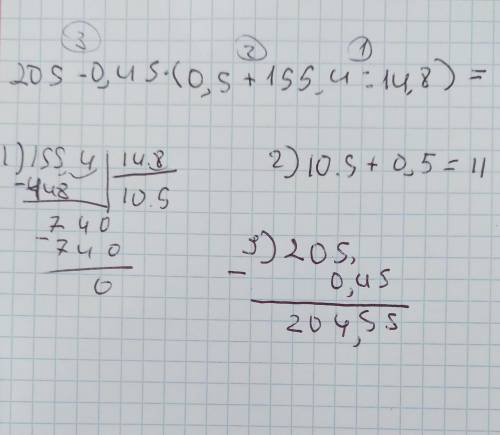 ③ ② ①
205 - 0,45·(0,5 + 155,4 : 14,8) =
1) 155,4 | 14,8
- 148 | 10.5
740
- 740
0
2) 10.5 + 0,5 = 11
3) 205,
- 0,45
204,55